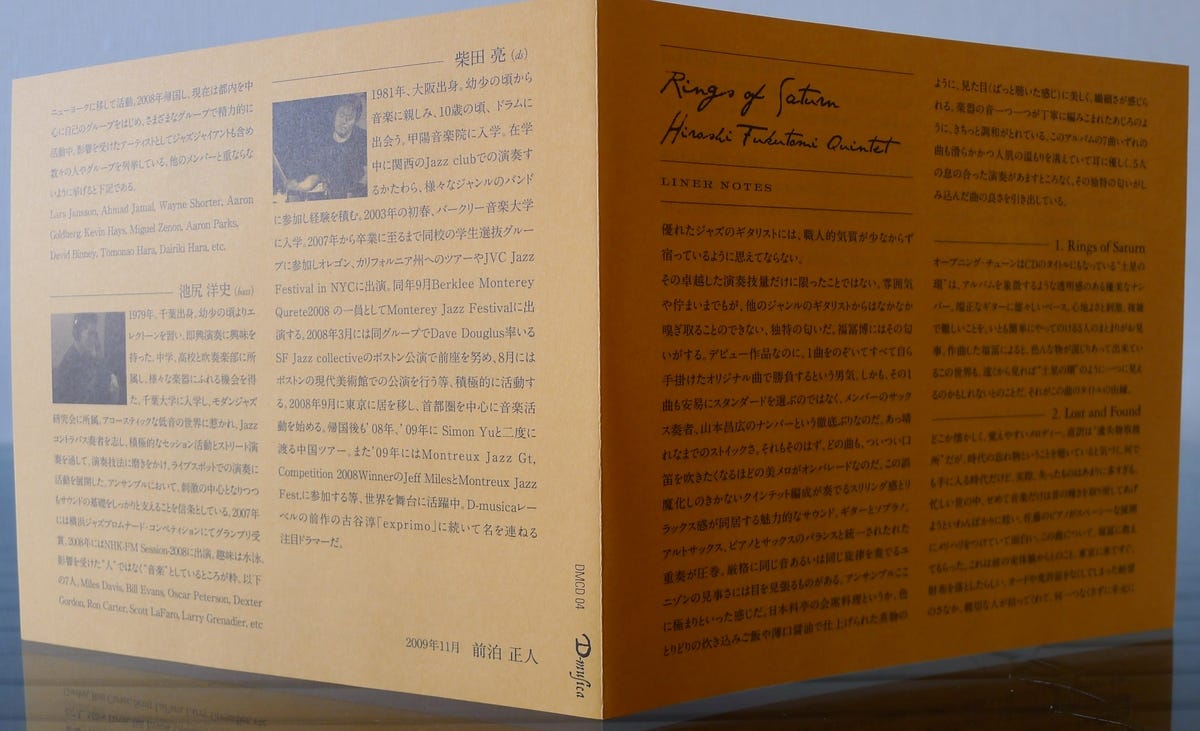 ニューヨークに移して活動。2008年帰国し、現在は都内を中
心に自己のグループをはじめ、さまざまなグループで精力的に
活動中。影響を受けたアーティストとしてジャズジャイアントも含め
数々の人やグループを列挙している。他のメンバーと重ならな
いように挙げると下記である。
Lars Jansson, Ahmad Jamal, Wayne Shorter, Aaron
Goldberg, Kevin Hays, Miguel Zenon, Aaron Parks,
David Binney, Tomonao Hara, Dairiki Hara, etc.
池尻 洋史 (bass)
1979年、千葉出身。幼少の頃よりエ
レクトーンを習い、即興演奏に興味を
持った。中学、高校と吹奏楽部に所
属し、様々な楽器にふれる機会を得
た。千葉大学に入学し、モダンジャズ
研究会に所属。アコースティックな低音の世界に惹かれ、Jazz
コントラバス奏者を志し、積極的なセッション活動とストリート演
奏を通して、演奏技法に磨きをかけ、ライブスポットでの演奏に
活動を展開した。アンサンブルにおいて、刺激の中心となりつつ
もサウンドの基礎をしっかりと支えることを信条としている。2007年
には横浜ジャズプロムナード・コンペティションにてグランプリ受
賞。2008年にはNHK-FM Session-2008に出演。趣味は水泳。
影響を受けた"人"ではなく"音楽"としているところが粋。以下
の7人、Miles Davis, Bill Evans, Oscar Peterson, Dexter
Gordon, Ron Carter, Scott LaFaro, Larry Grenadier, etc
柴田 亮 (ds)
1981年、大阪出身。幼少の頃から
音楽に親しみ、10歳の頃、ドラムに
出会う。甲陽音楽院に入学。在学
中に関西のJazz clubでの演奏す
るかたわら、様々なジャンルのバンド
に参加し経験を積む。2003年の初春、バークリー音楽大学
に入学。2007年から卒業に至るまで同校の学生選抜グルー
プに参加しオレゴン、カリフォルニア州へのツアーやJVC Jazz
Festival in NYCに出演。同年9月Berklee Monterey
Qurete2008 の一員としてMonterey Jazz Festivalに出
演する。2008年3月には同グループでDave Douglus率いる
SF Jazz collectiveのボストン公演で前座を努め、8月には
ボストンの現代美術館での公演を行う等、積極的に活動す
る。2008年9月に東京に居を移し、首都圏を中心に音楽活
動を始める。帰国後も'08年、'09年に Simon Yuと二度に
渡る中国ツアー。また'09年にはMontreux Jazz Gt,
Competition 2008WinnerのJeff MilesとMontreux Jazz
Fest.に参加する等、世界を舞台に活躍中。D-musicaレー
ベルの前作の古谷淳「exprimo」に続いて名を連ねる
注目ドラマーだ。
2009年11月 前泊 正人
DMCD 04
D-musica
Rings of Saturn
Hiroshi Fukutomi Quintet
LINER NOTES
優れたジャズのギタリストには、職人的気質が少なからず
宿っているように思えてならない。
その卓越した演奏技量だけに限ったことではない。雰囲気
や佇まいまでもが、他のジャンルのギタリストからはなかなか
嗅ぎ取ることのできない、独特の匂いだ。福冨博にはその匂
いがする。デビュー作品なのに、1曲をのぞいてすべて自ら
手掛けたオリジナル曲で勝負するという男気。しかも、その1
曲も安易にスタンダードを選ぶのではなく、メンバーのサック
ス奏者、山本昌広のナンバーという徹底ぶりなのだ。あっ晴
れなまでのストイックさ。それもそのはず、どの曲も、ついつい口
笛を吹きたくなるほどの美メロがオンパレードなのだ。この誤
魔化しのきかないクインテット編成が奏でるスリリング感とリ
ラックス感が同居する魅力的なサウンド。ギターとソプラノ、
アルトサックス、ピアノとサックスのバランスと統一されたれた
重奏が圧巻。厳格に同じ音あるいは同じ旋律を奏でるユ
ニゾンの見事さには目を見張るものがある。アンサンブルここ
に極まりといった感じだ。日本料亭の会席料理というか、色
とりどりの炊き込みご飯や薄口醤油で仕上げられた煮物の
ように、見た目(ぱっと聴いた感じ)に美しく、繊細さが感じら
れる。楽器の音一つ一つが丁寧に編みこまれたあじろのよ
うに、きちっと調和がとれている。このアルバムの7曲いずれの
曲も滑らかかつ人肌の温もりを湛えていて耳に優しく、5人
の息の合った演奏があますところなく、その独特の匂いがし
み込んだ曲の良さを引き出している。
1. Rings of Saturn
オープニング・チューンはCDのタイトルにもなっている"土星の
環"は、アルバムを象徴するような透明感のある確実なナン
バー。端正なギターに嬉々しいベース。心地よさと刺激、複雑
で難しいことを、いとも簡単にやってのける5人のまとまりがお見
事。作曲した福冨によると、色んな物が混じりあって出来てい
るこの世界も、遠くから見れば"土星の環"のように一つに見え
るのかもしれないとのことだ。それがこの曲のタイトルの由縁。
2. Lost and Found
どこか懐かしく、覚えやすいメロディー。直訳は"遺失物取扱
所"だが、時代の忘れ物ということを聴いていると気づく。何で
も手に入る時代だけど、実際、失ったものはあまりに多すぎる。
忙しい世の中、せめて音楽だけは昔の輝きを取り戻してあげ